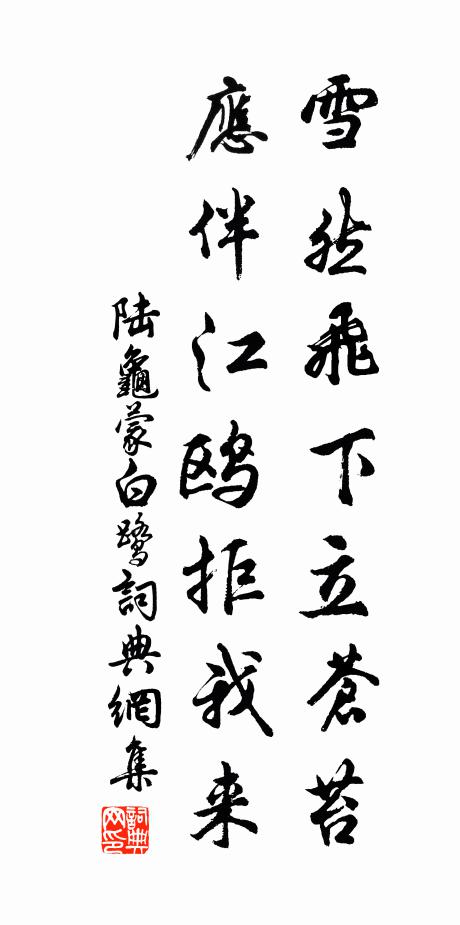 雪然飛下立蒼苔
應伴江鸥拒我来
陆龜蒙白鹭詞典網集
詞典网印